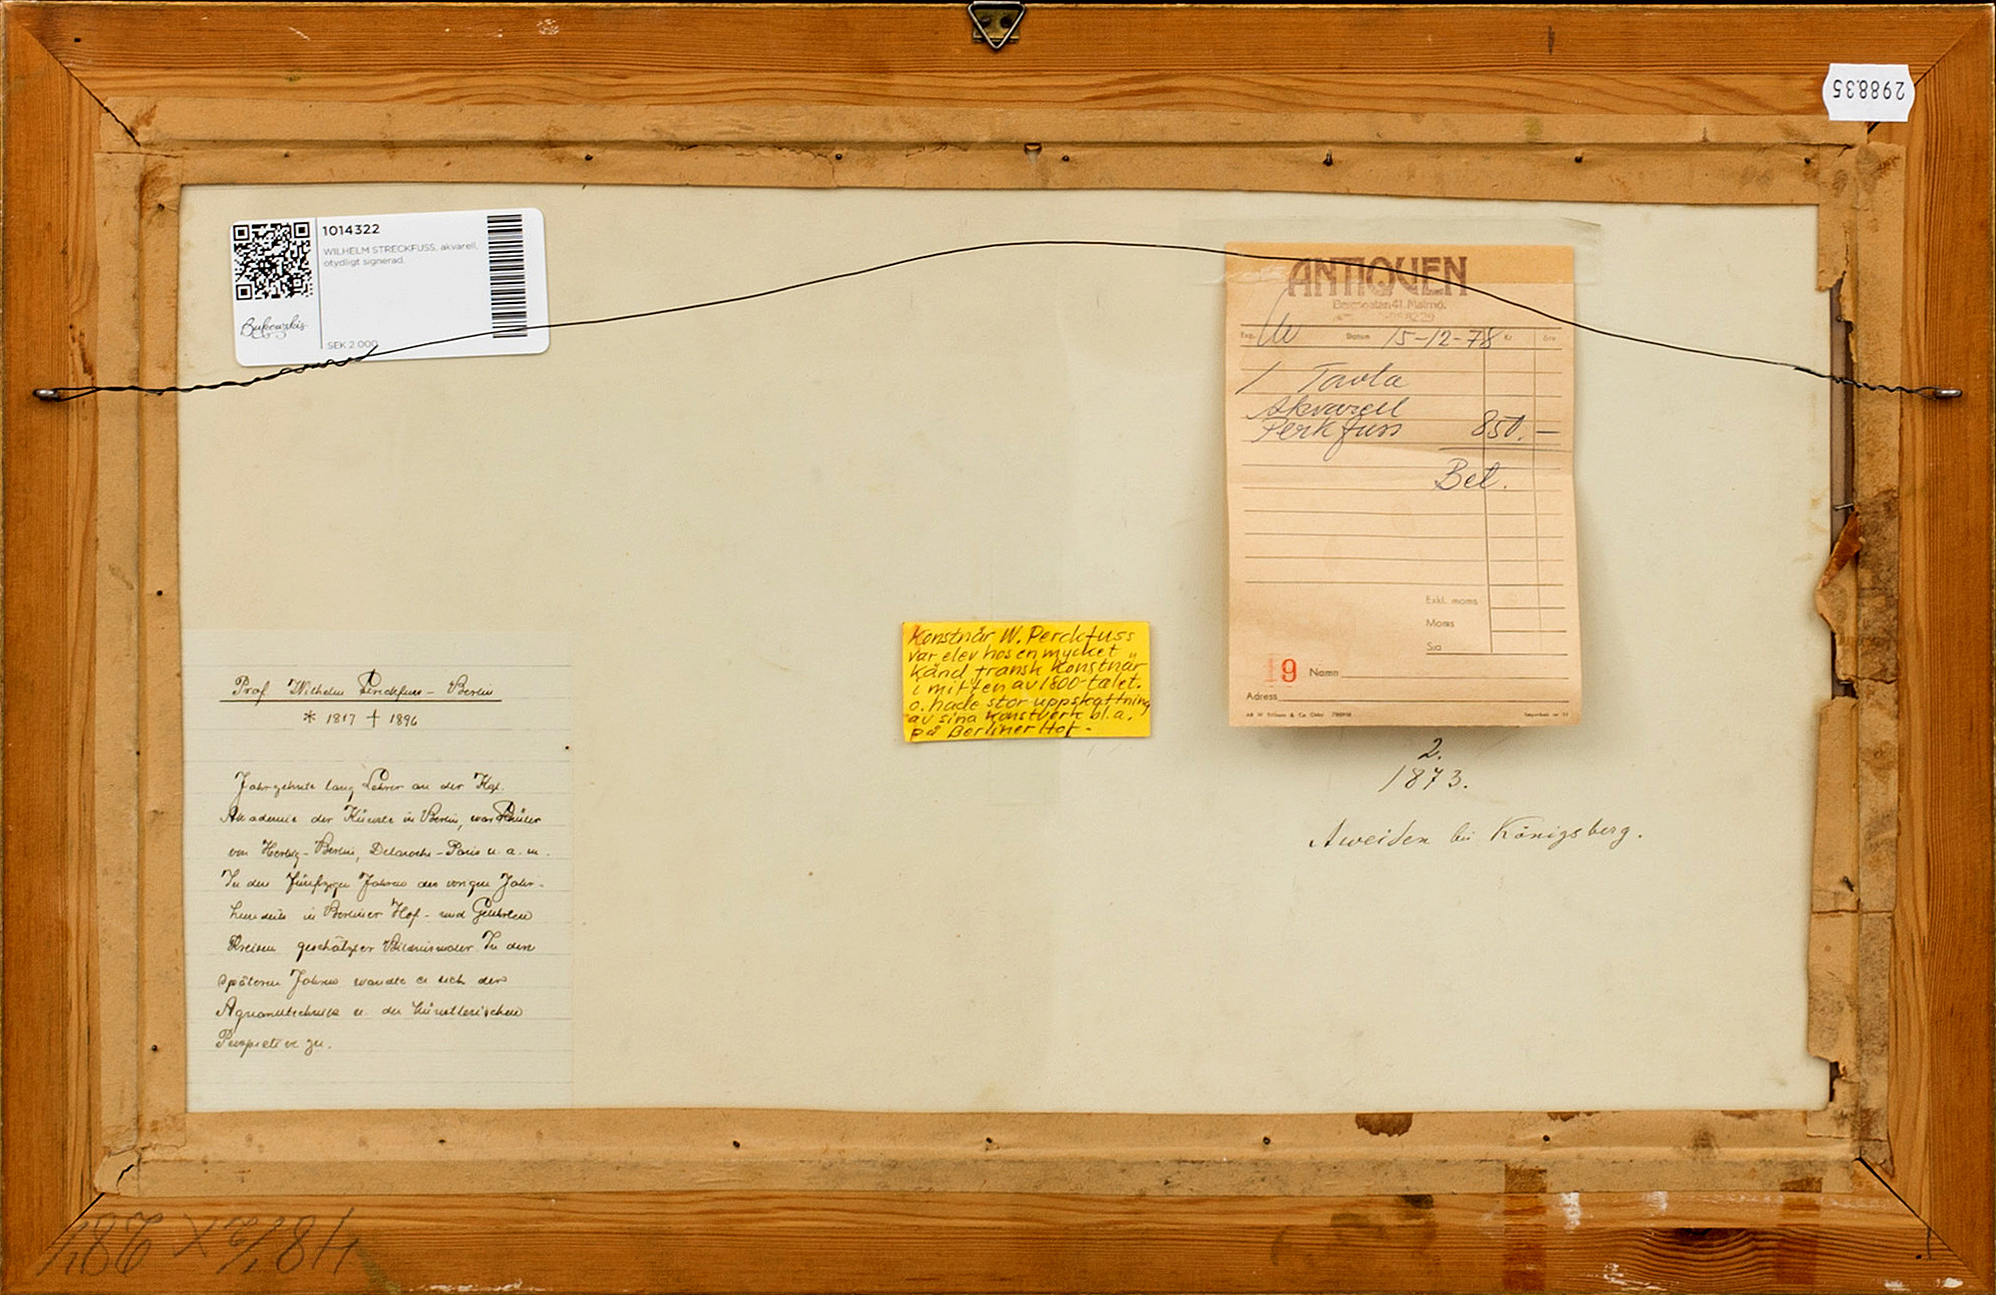 298835
1014322
WILHELM STRECKFUSS, akvarell,
otydligt signerad.
Bukowskis
SEK 2 000
ANTIQUEN
41, Malmö.
Exp.
Datum 15-12-78 Kr Öre
1 Tavla
Akvarell
Perkfuss 850.—
Bet.
Exkl. moms
Moms
S:a
19 Namn
Adress
Konstnär W. Perckfuss
var elev hos en mycket
känd fransk konstnär
i mitten av 1800-talet.
o. hade stor uppskattning
av sina konstverk bl.a.
på Berliner Hof.-
2.
1873.
Aweiden bei Königsberg.
Prof. Wilhelm Streckfuss - Berlin
* 1817 † 1896
Jahrzehnte lang Lehrer an der Kgl.
Akademie der Künste in Berlin, war Schüler
von Herbig-Berlin, Delaroche-Paris u. a. m.
In den fünfziger Jahren des vorigen Jahr-
hunderts in Berliner Hof- und Gelehrten
Kreisen geschätzter Bildnismaler. In den
späteren Jahren wandte er sich der
Aquarelltechnik u. der künstlerischen
Perspektive zu.